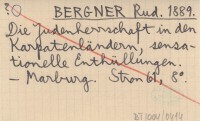 ? BERGNER Rud. 1889.
Die Judenherrschaft in den
Karpatenländern, sensa-
tionelle Enthüllungen.
– Marburg. Stron 61, 8°.